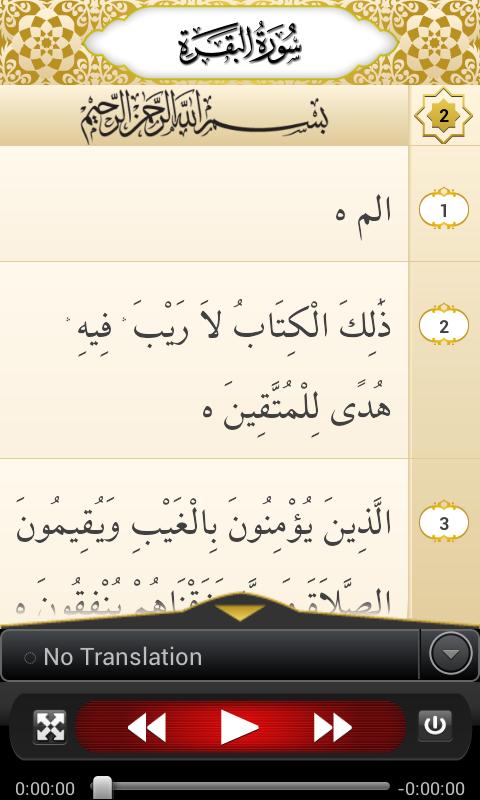 سُورَةُ البَقَرَةِ
بِسْمِ اللَّهِ الرَّحْمَٰنِ الرَّحِيمِ
2
الم ه
1
ذَٰلِكَ الْكِتَابُ لاَ رَيْبَ ۛ فِيهِ ۛ
2
هُدًى لِلْمُتَّقِينَ ه
الَّذِينَ يُؤْمِنُونَ بِالْغَيْبِ وَيُقِيمُونَ
3
الصَّلاَةَ يُنْفِقُونَ ه
No Translation
0:00:00
-0:00:00